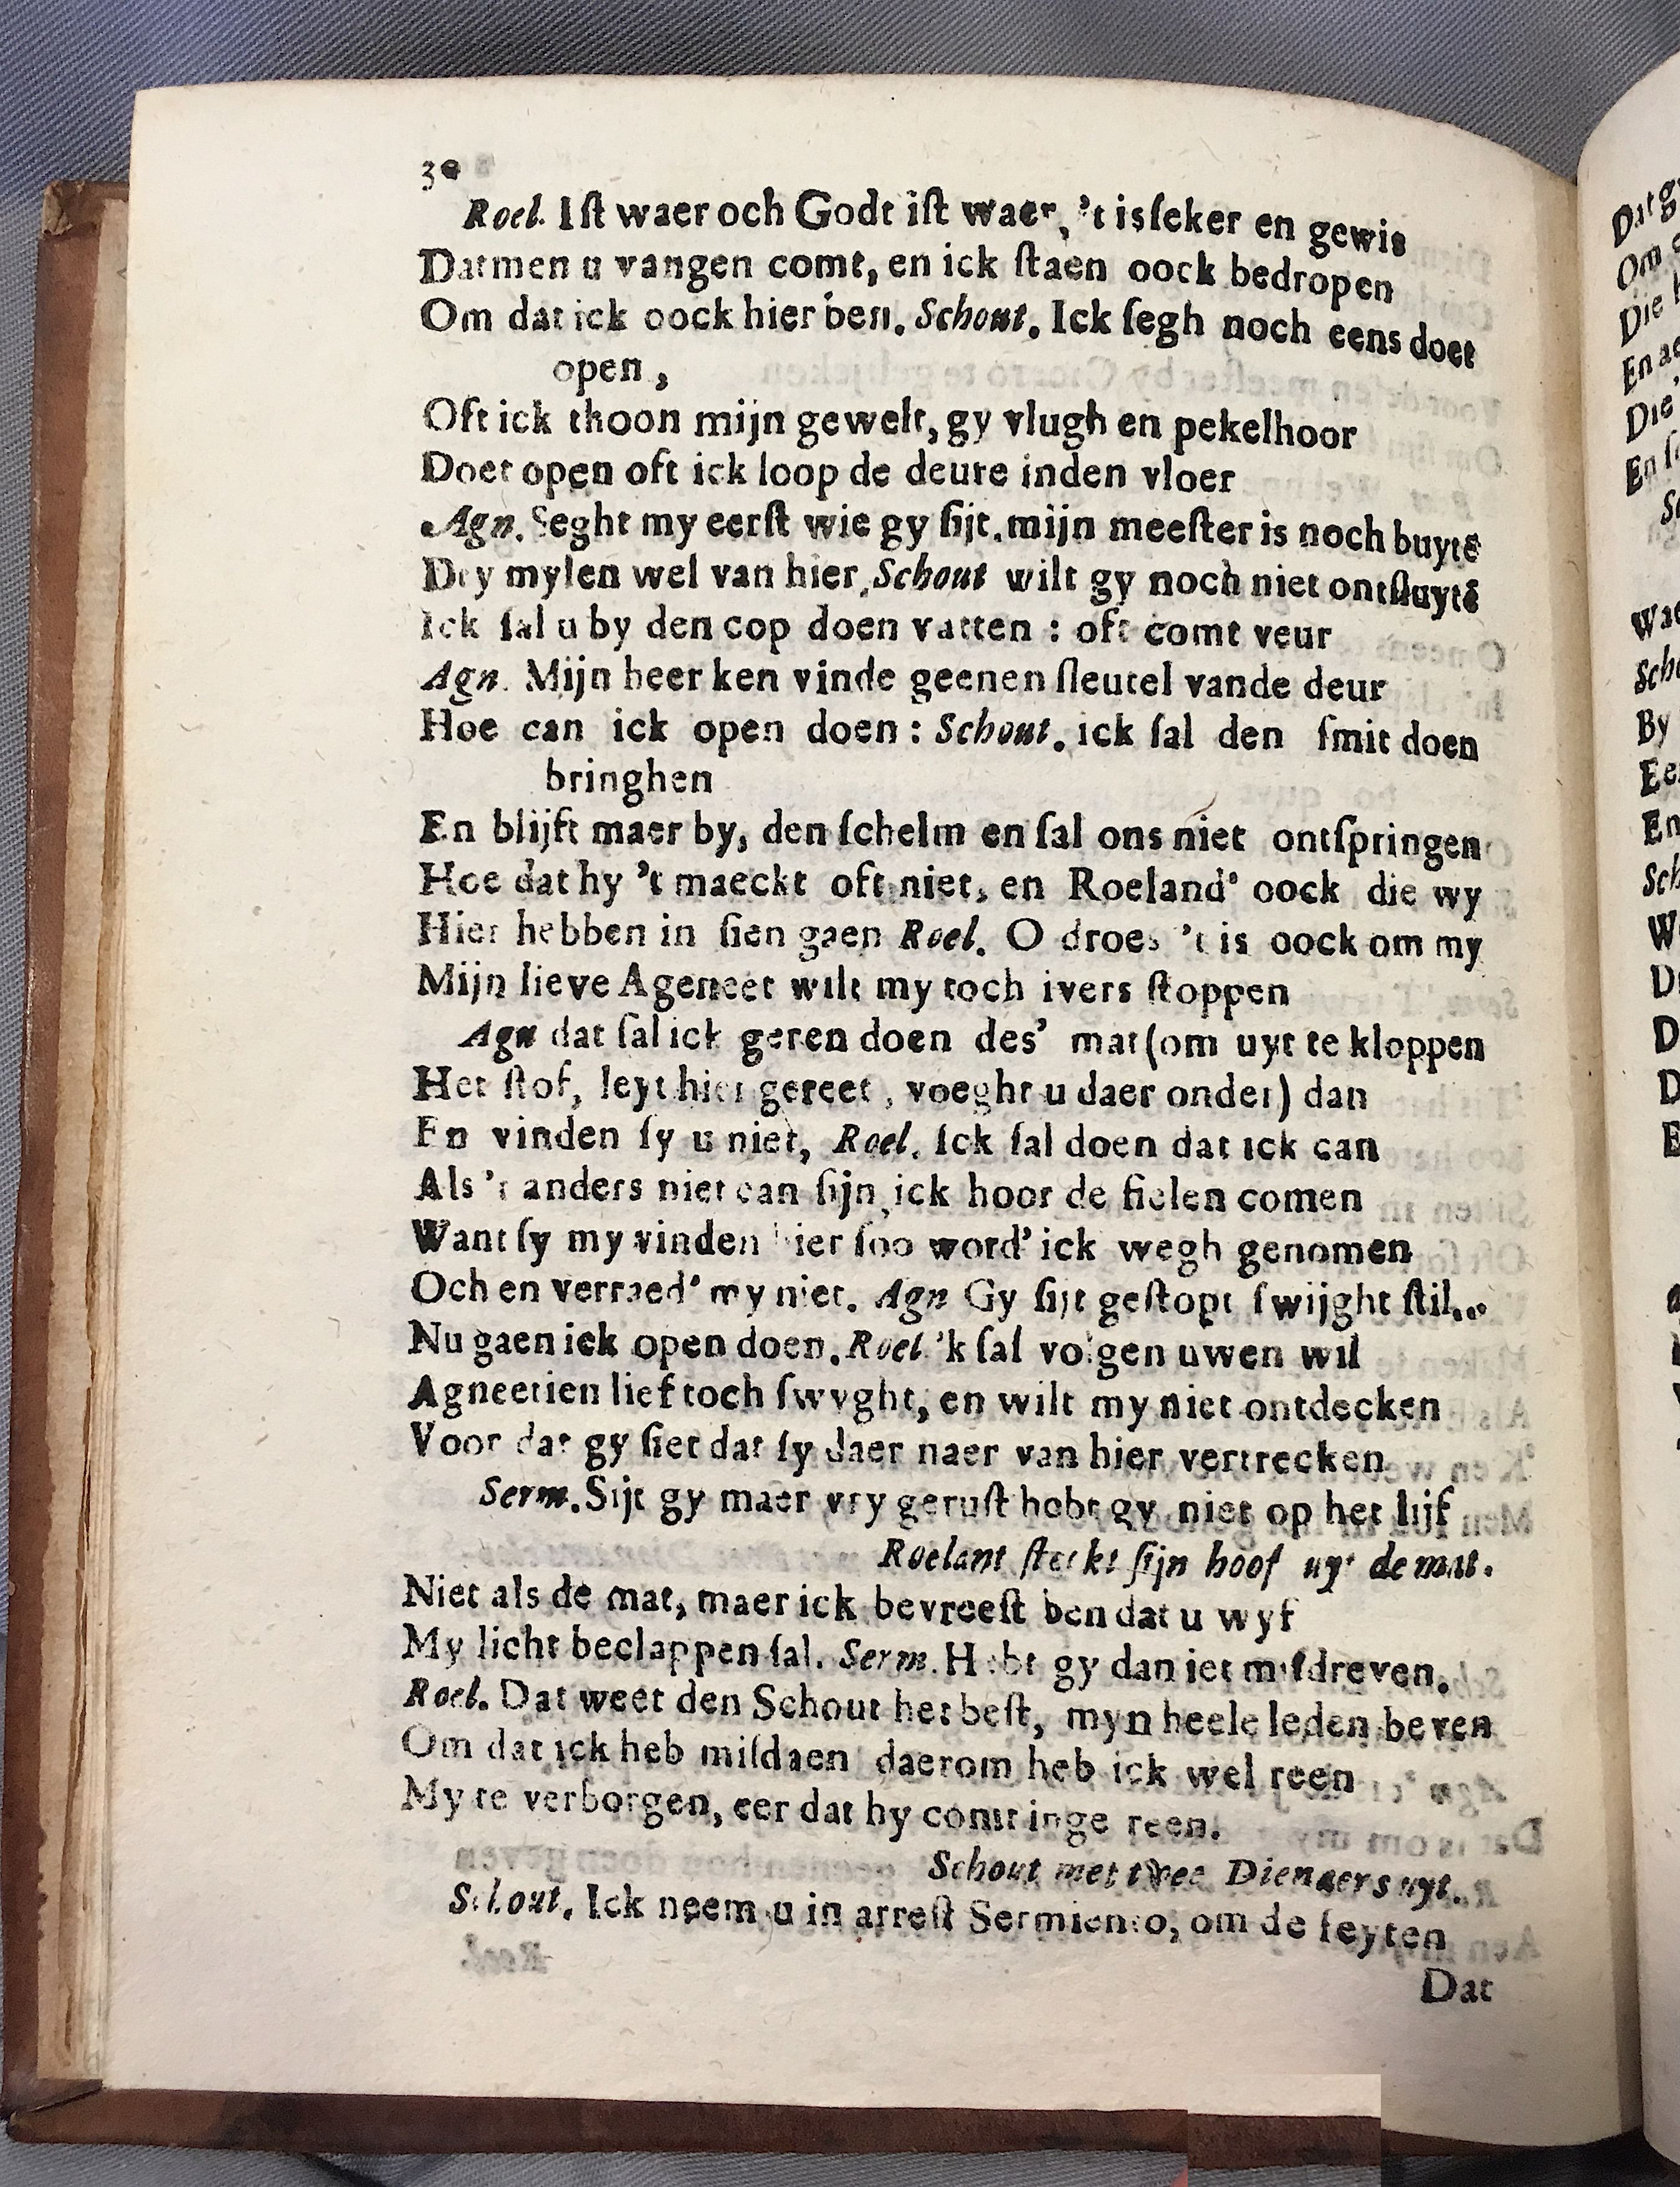 30
Roel. Iſt waer och Godt iſt waer, 't is ſeker en gewis
Datmen u vangen comt, en ick ſtaen oock bedropen
Om dat ick oock hier ben. Schout. Ick ſegh noch eens doet
open,
Oft ick thoon mijn gewelt, gy vlugh en pekelhoor
Doet open oft ick loop de deure inden vloer
Agn. Seght my eerſt wie gy ſijt. mijn meeſter is noch buytē
Dry mylen wel van hier, Schout wilt gy noch niet ontſluytē
Ick ſal u by den cop doen vatten : oft comt veur
Agn. Mijn heer ken vinde geenen ſleutel vande deur
Hoe can ick open doen : Schout. ick ſal den ſmit doen
bringhen
En blijft maer by, den ſchelm en ſal ons niet ontſpringen
Hoe dat hy 't maeckt oft niet, en Roeland' oock die wy
Hier hebben in ſien gaen Roel. O droes 't is oock om my
Mijn lieve Ageneet wilt my toch ivers ſtoppen
Agn dat ſal ick geren doen des' mat (om uyt te kloppen
Het ſtof, leyt hier gereet, voeght u daer onder) dan
En vinden ſy u niet, Roel. Ick ſal doen dat ick can
Als 't anders niet can ſijn, ick hoor de fielen comen
Want ſy my vinden hier ſoo word' ick wegh genomen
Och en verraed' my niet. Agn Gy ſijt geſtopt ſwijght ſtil...
Nu gaen ick open doen. Roel. 'k ſal volgen uwen wil
Agneetien lief toch ſwyght, en wilt my niet ontdecken
Voor dat gy ſiet dat ſy daer naer van hier vertrecken
Serm. Sijt gy maer vry geruſt hebt gy niet op het lijf
Roelant ſteckt ſijn hoof uyt de mat.
Niet als de mat, maer ick bevreeſt ben dat u wyf
My licht beclappen ſal. Serm. Hebt gy dan iet miſdreven.
Roel. Dat weet den Schout het beſt, myn heele leden beven
Om dat ick heb miſdaen daerom heb ick wel reen
My te verborgen, eer dat hy comt inge reen.
Schout met twee Dienaers uyt.
Schout. Ick neem u in arreſt Sermiento, om de feyten
Dat